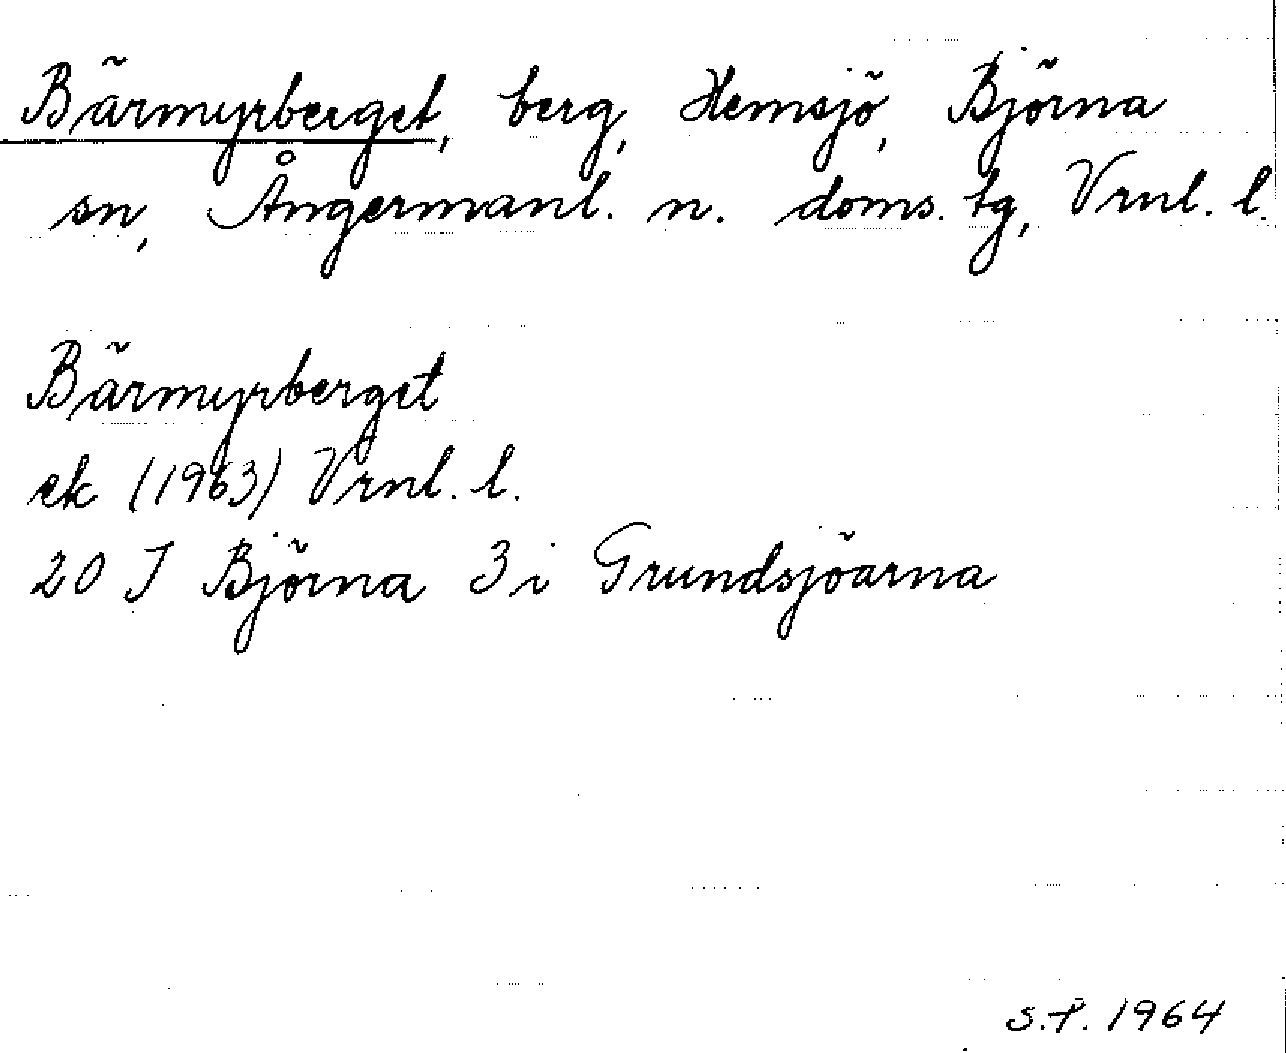 Bärmyrberget, berg, Hemsjö, Björna
sn, Ångermanl. n. doms. tg, Vrnl. l.
Bärmyrberget
ek (1963) Vrnl. l.
20 J Björna 3 i Grundsjöarna
S.P. 1964